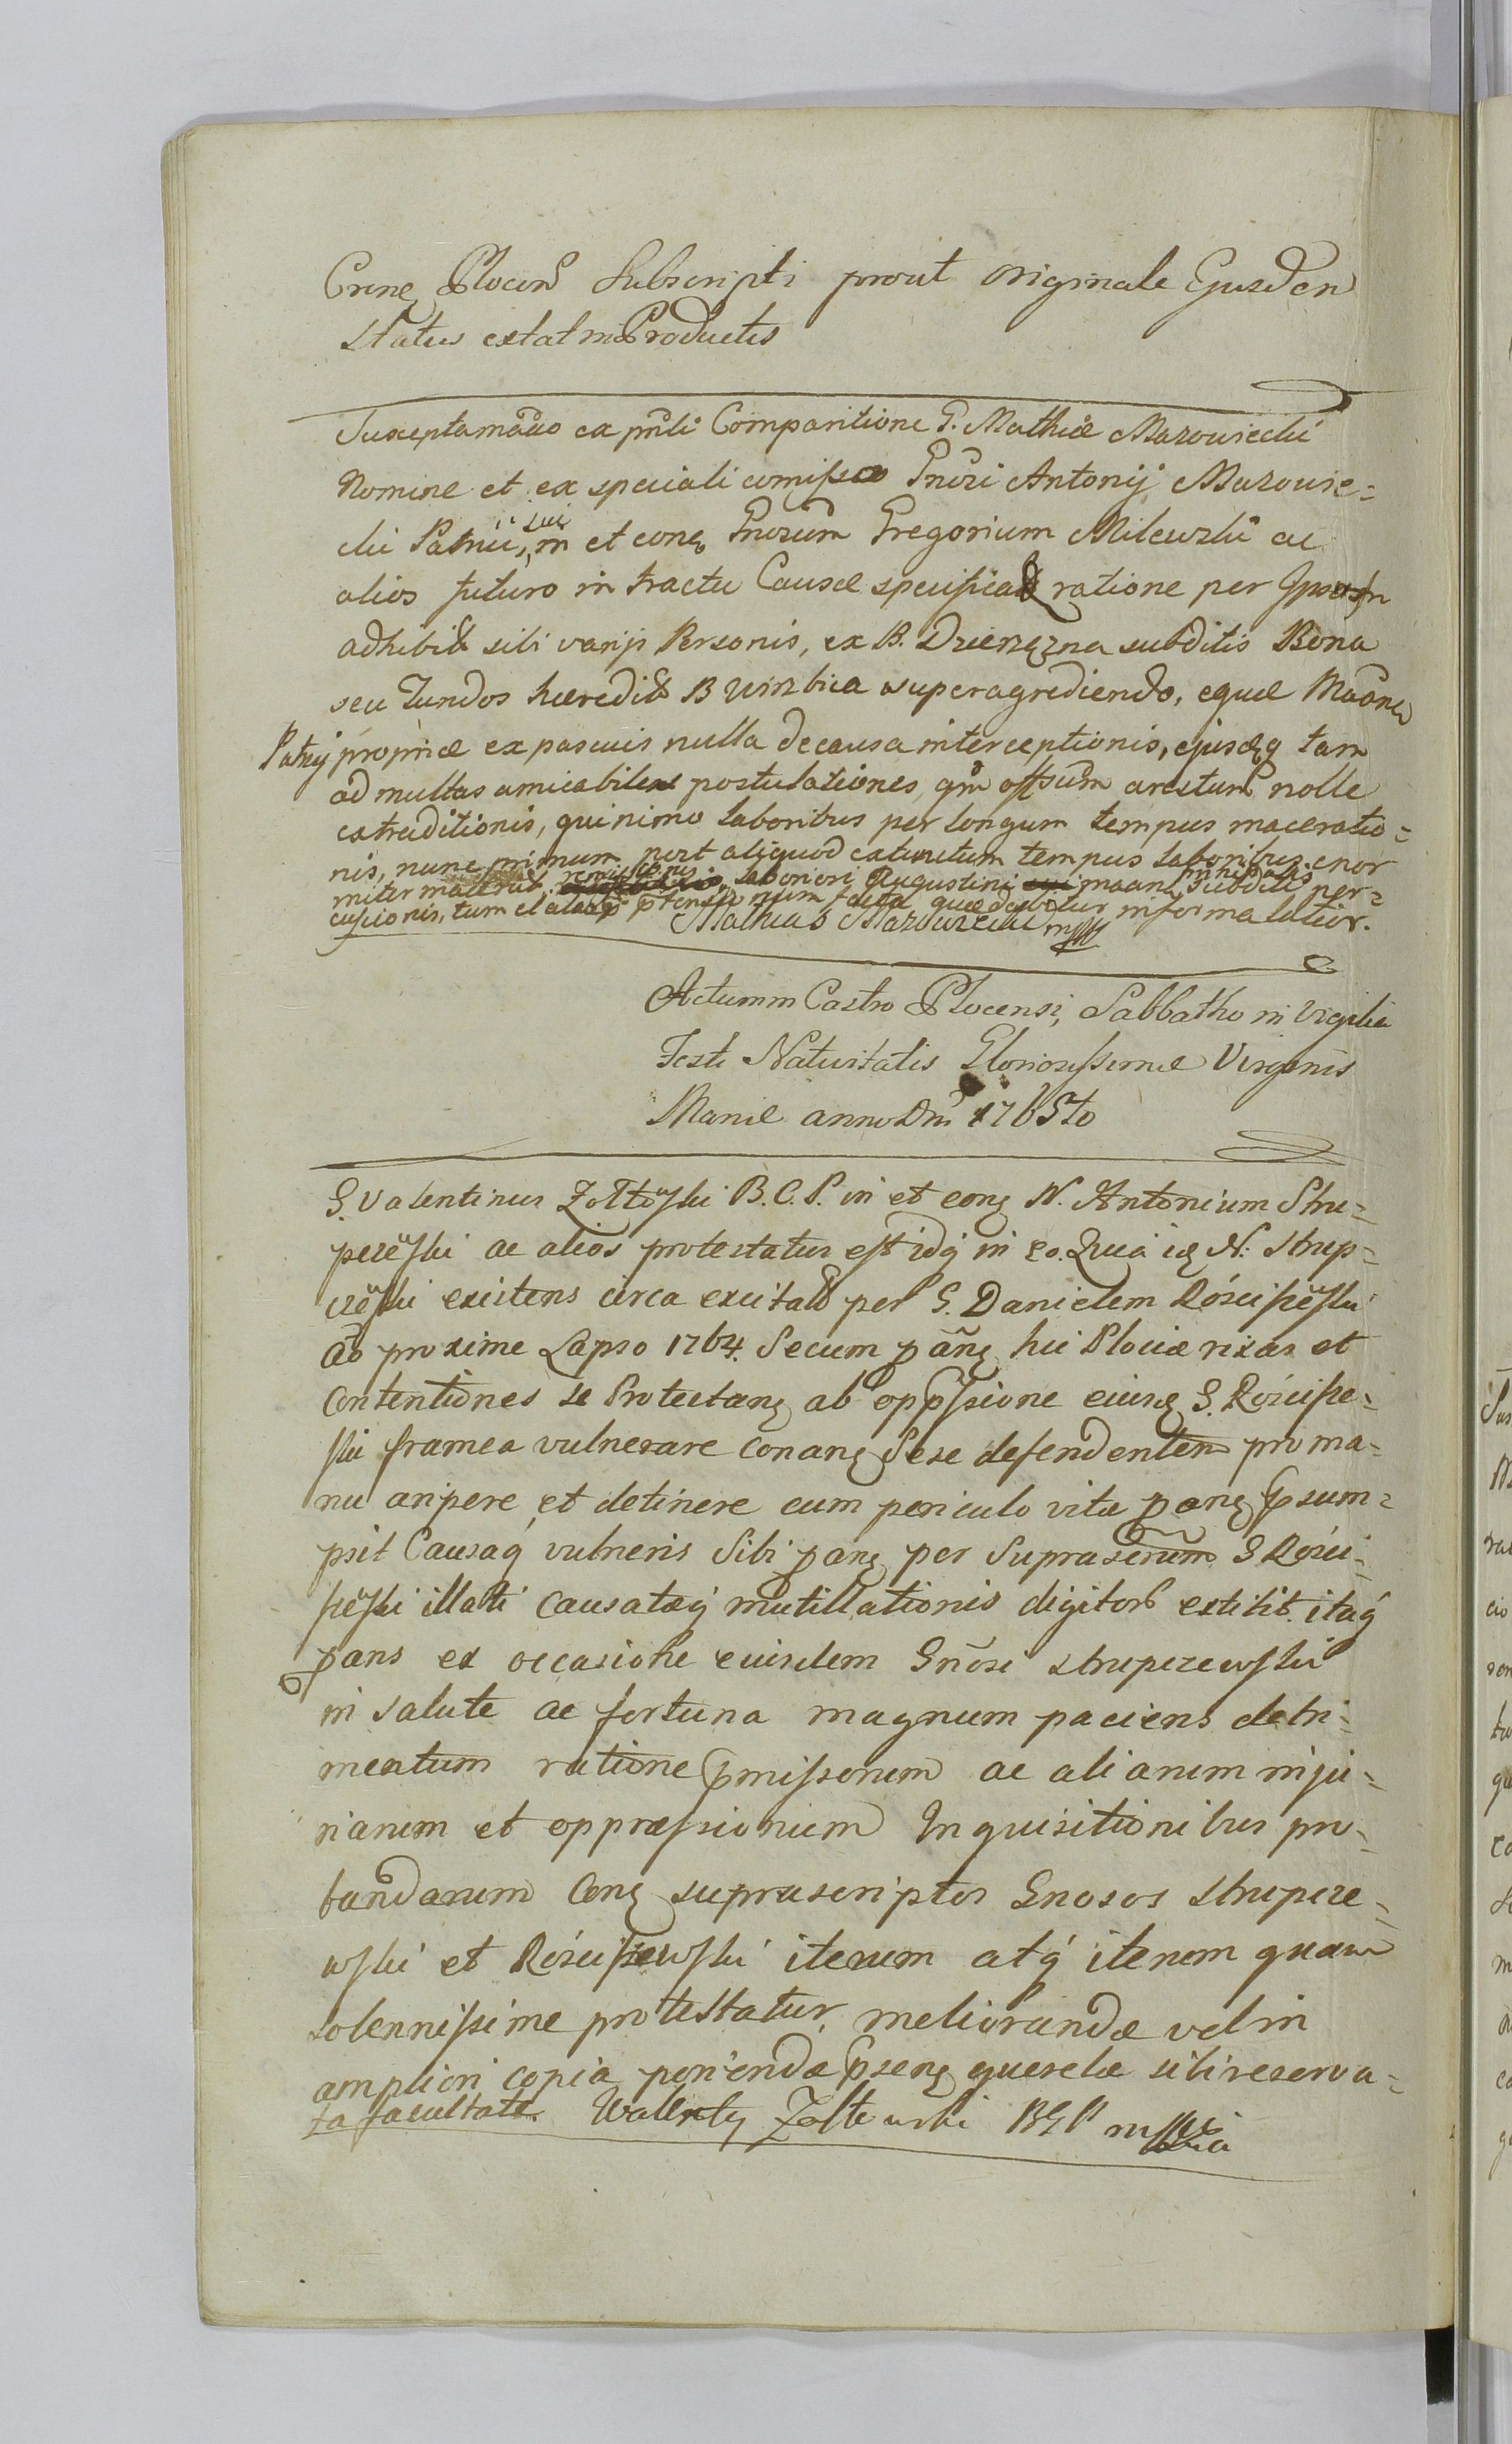 Crenę Plocen Subscripti prout originale Eiusden
status extat in Productis
Susceptamãõ ex pñli Comparitione G. Mathiæ Mazowiecki
Nomine et ex speciali comisso Gnõri Antonij Mazowie=
cki Patrui, sui in et conę Gnosum Gregorium Milewski ac
alios futuro in tractu Causæ specificań ratione per Ipsosm
adhibit sibi varijs Personis, ex B. Dzierzązna subditis Bona
seu Fundos hæredit B Wirzbica superagrediendo, equæ Mãõnen
Patrij propriæ ex pascuis nulla decausa interceptionis, ejusdęq tam
ad multas amicabiles postulationes, qm offsum arestum nolle
extraditionis, quinimo laboribus per longum tempus maceratio=
nis, nunc primum post aliquod exturitum tempus laboribus enor
miter macerat remissionis, laboriosi Augustini maan subditi per=
cussionis, tum et aliar ptensionum facta quæ dabitur in forma latior.
Mathias Mazowiecki mpp
Actum in Castro Plocensi, Sabbatho in Vigilia
Festi Nativitatis Gloriosissimæ Virginis
Mariæ anno Dni 1765to
G. Valentinus Zołtowski B.C.P. in et conę N. Antonium Stru=
pczewski ac alios protestatus est idq in eo. Quia idę N: Strup=
czewski existens circa excitatõ per G. Danielem Rościszewski
aõ proxime Lapso 1764. Secum pañę hic Plociæ rixas et
Contentiones se Protectanę ab oppssione eiusdę G. Rościsze=
wski framea vulnerare conanę Sese defendentem pro ma=
nu aripere, et detinere cum periculo vitæ panę Psum=
psit Causaq vulneris Sibi panę per Suprascrium G Rości=
szewski illati causatæq mutillationis digitor extitit. itaq
pans ex occasione eiusdem Gñosi Strupczewski
in salute ac fortuna magnum paciens detri=
mentum ratione pmissorum ac aliarum inju=
riarum et oppraessionum Inquisitionibus pro=
bandarum Conę suprascriptos Gnosos Strupcze=
wski et Rościszewski iterum atq iterum quam
solennissime protestatur, meliorandæ vel in
ampliori copia poriendæ Psenę querelæ sibi reserva=
ta facultate. Walenty Zołtowski BGP mppria